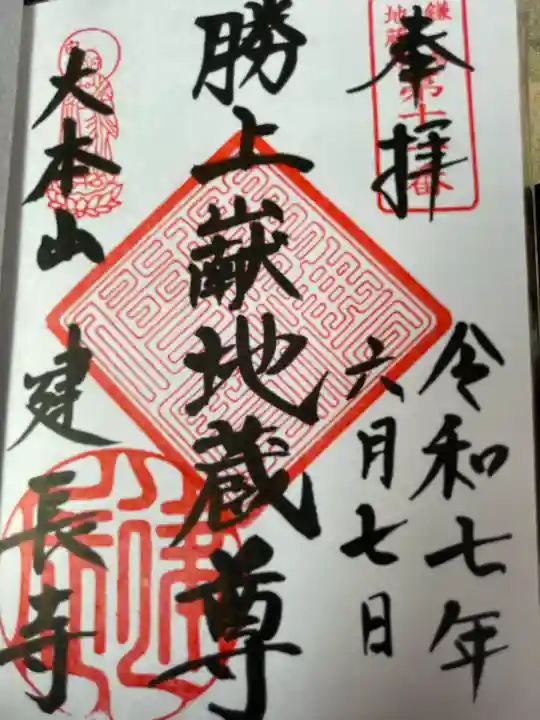 奉拝
令和七年
六月七日
勝上嶽地蔵尊
大本山
建長寺